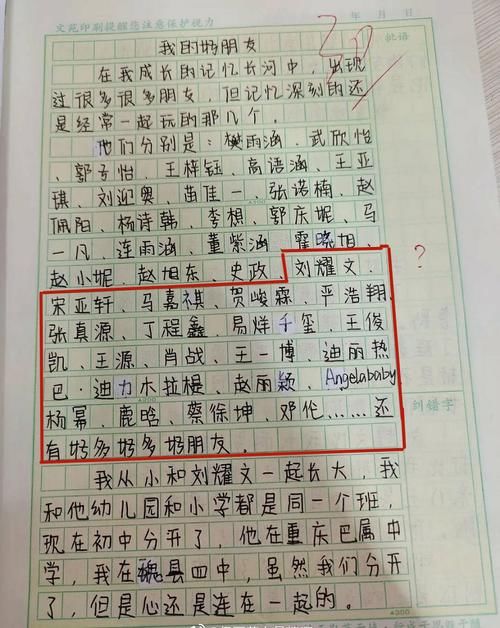 文苑印刷提醒您注意保护视力
年 月 日
批语
我的好朋友
在我成长的记忆长河中，出现
过很多很多朋友，但记忆深刻的还
是经常一起玩的那几个。
他们分别是：樊雨涵、武欣怡
、郭子怡、王梓钰、高语涵、王亚
琪、刘迎奥、苗佳一、张诺楠、赵
佩阳、杨诗韩、李想、郭庆妮、马
一凡、连雨涵、董紫涵、霍晓旭、
赵小妮、赵旭东、史政、刘耀文、
?
宋亚轩、马嘉祺、贺峻霖、严浩翔、
张真源、丁程鑫、易烊千玺、王俊
凯、王源、肖战、王一博、迪丽热
巴·迪力木拉提、赵丽颖、Angelababy
杨幂、鹿晗、蔡徐坤、邓伦……还
纠错字
有好多好多好朋友。
我从小和刘耀文一起长大，我
和他幼儿园和小学都是同一个班，
现在初中分开了，他在重庆巴属中
学，我在魏县四中，虽然我们分开
了，但是心还是连在一起的。